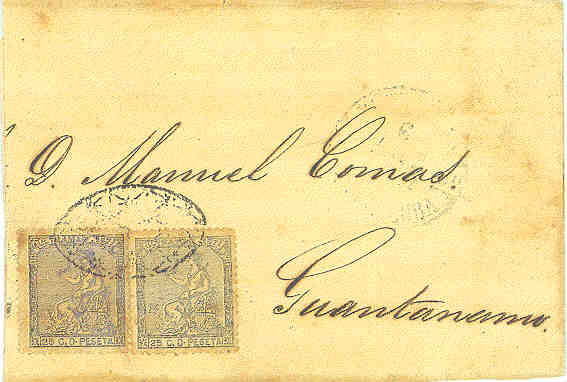 D. Manuel Comas.
Guantanamo.
25 C. D. PESETA
25 C. D. PESETA